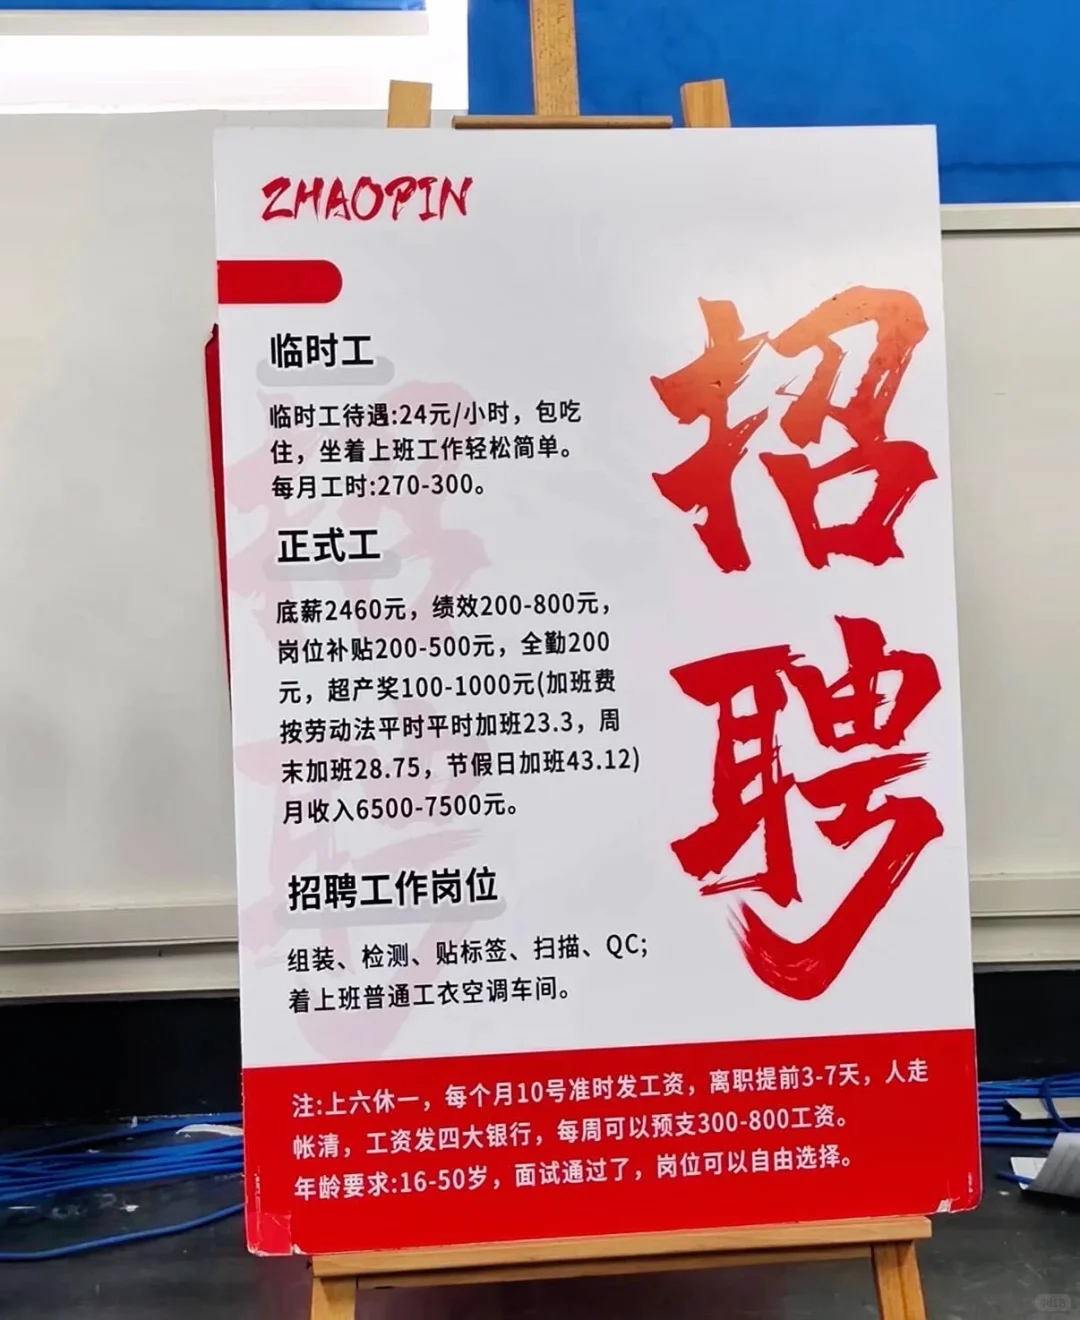 ZHAOPIN
招聘
临时工
临时工待遇:24元/小时，包吃
住，坐着上班工作轻松简单。
每月工时:270-300。
正式工
底薪2460元，绩效200-800元，
岗位补贴200-500元，全勤200
元，超产奖100-1000元(加班费
按劳动法平时平时加班23.3，周
末加班28.75，节假日加班43.12)
月收入6500-7500元。
招聘工作岗位
组装、检测、贴标签、扫描、QC;
着上班普通工衣空调车间。
注:上六休一，每个月10号准时发工资，离职提前3-7天，人走
帐清，工资发四大银行，每周可以预支300-800工资。
年龄要求:16-50岁，面试通过了，岗位可以自由选择。